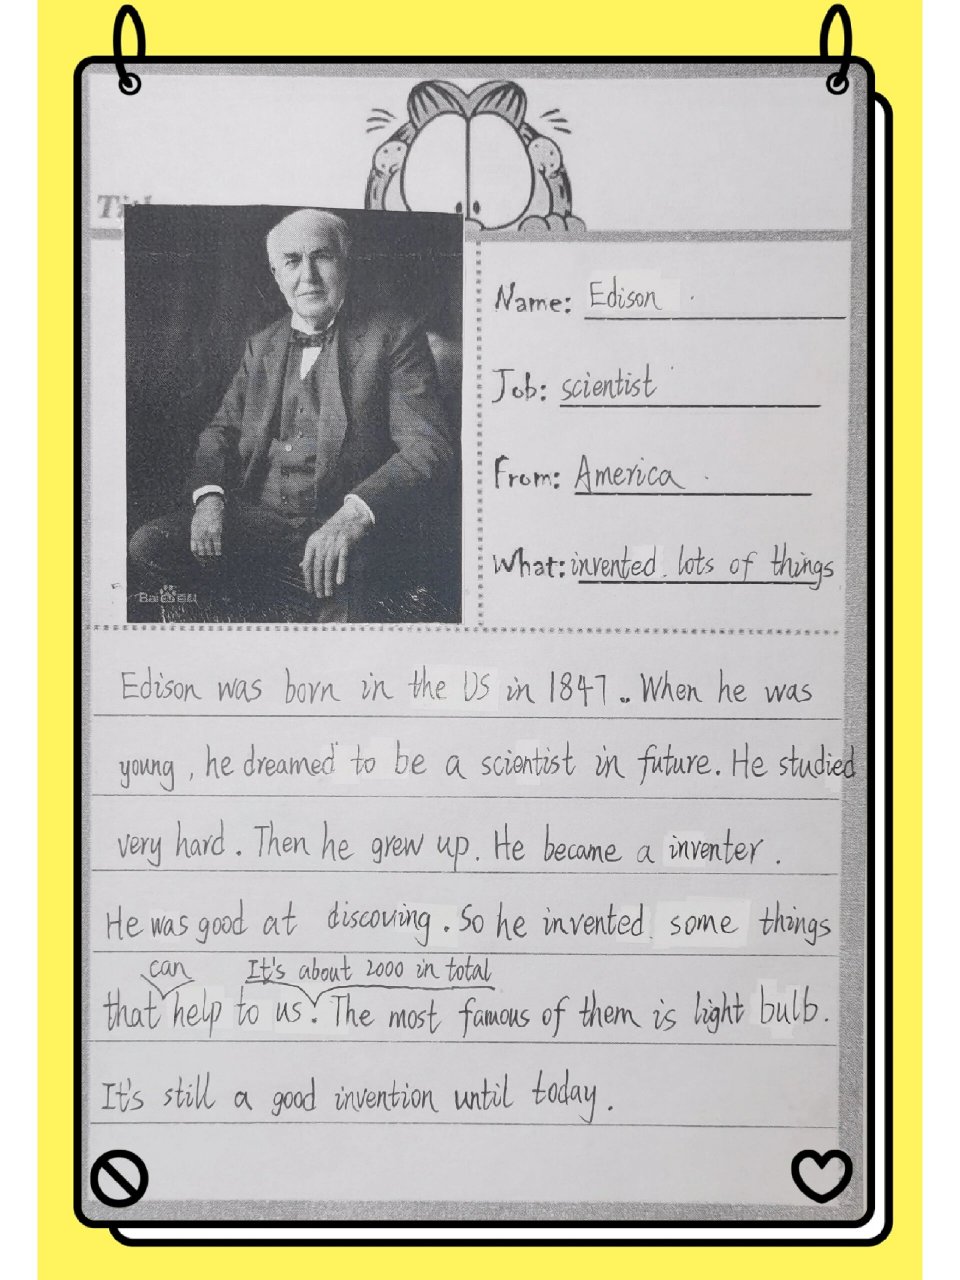 Name: Edison
Job: scientist
From: America
What: invented lots of things
Bai百科
Edison was born in the US in 1847.. When he was
young, he dreamed to be a scientist in future. He studied
very hard. Then he grew up. He became a inventer.
He was good at discoving. So he invented some things
can It's about 2000 in total
that help to us. The most famous of them is light bulb.
It's still a good invention until today.